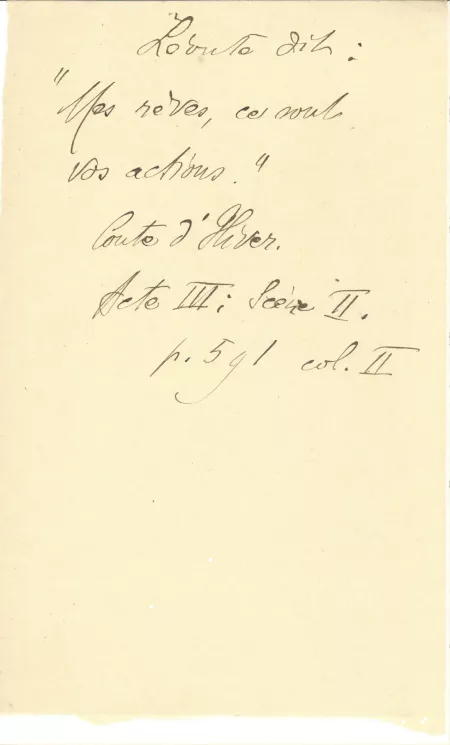 Léonte dit :
"Mes rêves, ce sont
vos actions."
Conte d'Hiver.
Acte III; Scène II.
p. 591 col. II